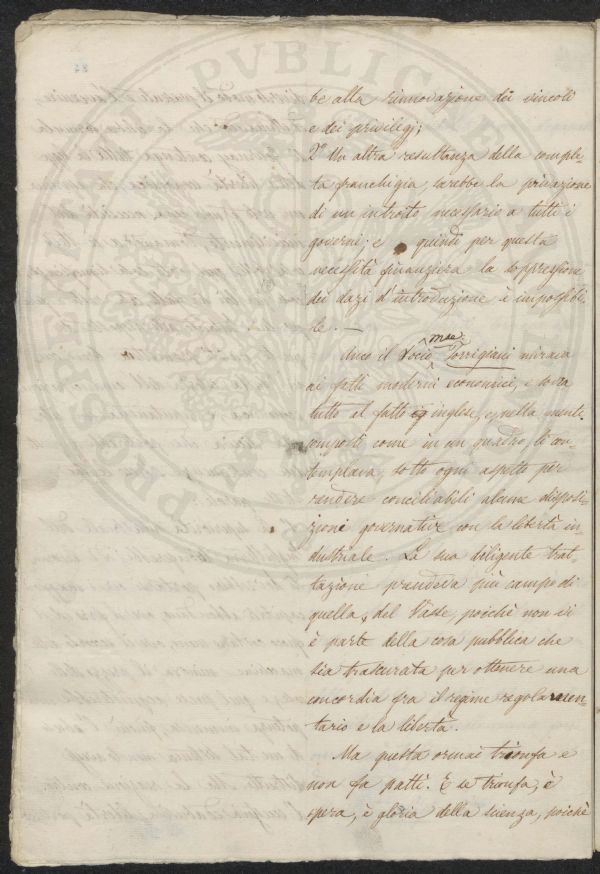 be alla rinnovazione dei vincoli
e dei privilegj;
2º Un altra resultanza della comple-
ta franchigia, sarebbe la privazione
di un introito necessario a tutti i
governi; e quindi per questa
necessità finanziera la soppressione
dei dazi d'introduzione è impossibi-
le. —
Anco il Socio Mse Torrigiani mirava
ai fatti moderni economici, e sovra
tutto al fatto inglese, e, nella mente
composti come in un quadro, li con-
templava sotto ogni aspetto per
rendere conciliabili alcune disposi-
zioni governative con la libertà in-
dustriale. La sua diligente trat-
tazione prendeva più campo di
quella, del Vaste, poichè non vi
è parte della cosa pubblica che
sia trascurata per ottenere una
concordia fra il regime regolamen-
tario e la libertà.
Ma questa ormai trionfa e
non fa patti. E se trionfa, è
opera, è gloria della scienza, poichè
PROSPERITATI PUBLICAE